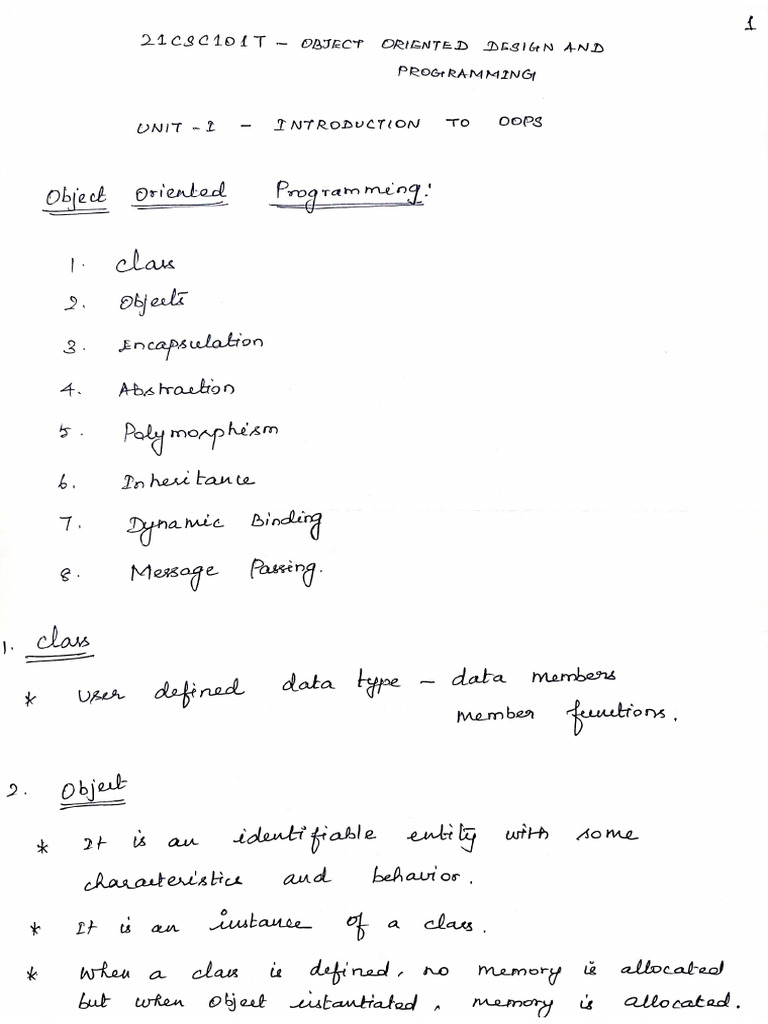 1
21CSC101T - OBJECT ORIENTED DESIGN AND
PROGRAMMING
UNIT - I - INTRODUCTION TO OOPS
Object Oriented Programming:
1. Class
2. Objects
3. Encapsulation
4. Abstraction
5. Polymorphism
6. Inheritance
7. Dynamic Binding
8. Message Passing.
1. Class
* User defined data type - data members
member functions.
2. Object
* It is an identifiable entity with some
characteristics and behavior.
* It is an instance of a class.
* When a class is defined, no memory is allocated
but when object istantiated, memory is allocated.